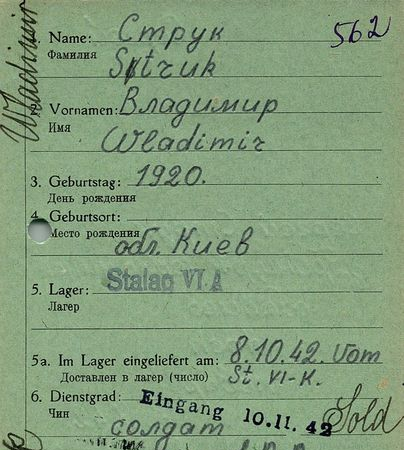 1. Name: Струк 562
Фамилия
Struk
2. Vornamen: Владимир
Имя
Wladimir
Wladimir
3. Geburtstag: 1920.
День рождения
4. Geburtsort:
Место рождения
обл. Киев
Stalag VI A
5. Lager:
Лагер
5a. Im Lager eingeliefert am: 8.10.42. Vom
Доставлен в лагер (число) St. VI-K.
6. Dienstgrad: Eingang 10.11.42 Sold
Чин
солдат